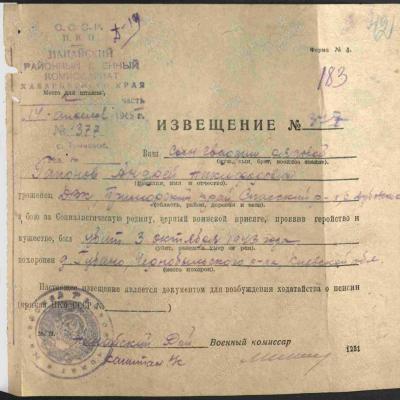 С.С.С.Р.
Н.К.О.
НАНАЙСКИЙ
РАЙОННЫЙ ВОЕННЫЙ
КОМИССАРИАТ
ХАБАРОВСКОГО КРАЯ
Место для штампа, часть
14 1945 г.
№ 377
с. Троицкое
Форма № 4.
183
ИЗВЕЩЕНИЕ №
Ваш сын рядовой
(муж, сын, брат, военное звание)
Гапонов Андрей
(фамилия, имя и отчество)
уроженец ДВК, Приморский край р-н
(область, район, деревня и село)
в бою за Социалистическую родину, верный воинской присяге, проявив геройство и
мужество, был убит 3 октября 1943 года
(убит, ранен, умер от ран)
похоронен д. Губино Чернобыльского р-на Киевской обл.
(место похорон)
Настоящее извещение является документом для возбуждения ходатайства о пенсии
(приказ НКО СССР №
Нанайский Рай Военный комиссар
капитан 1251